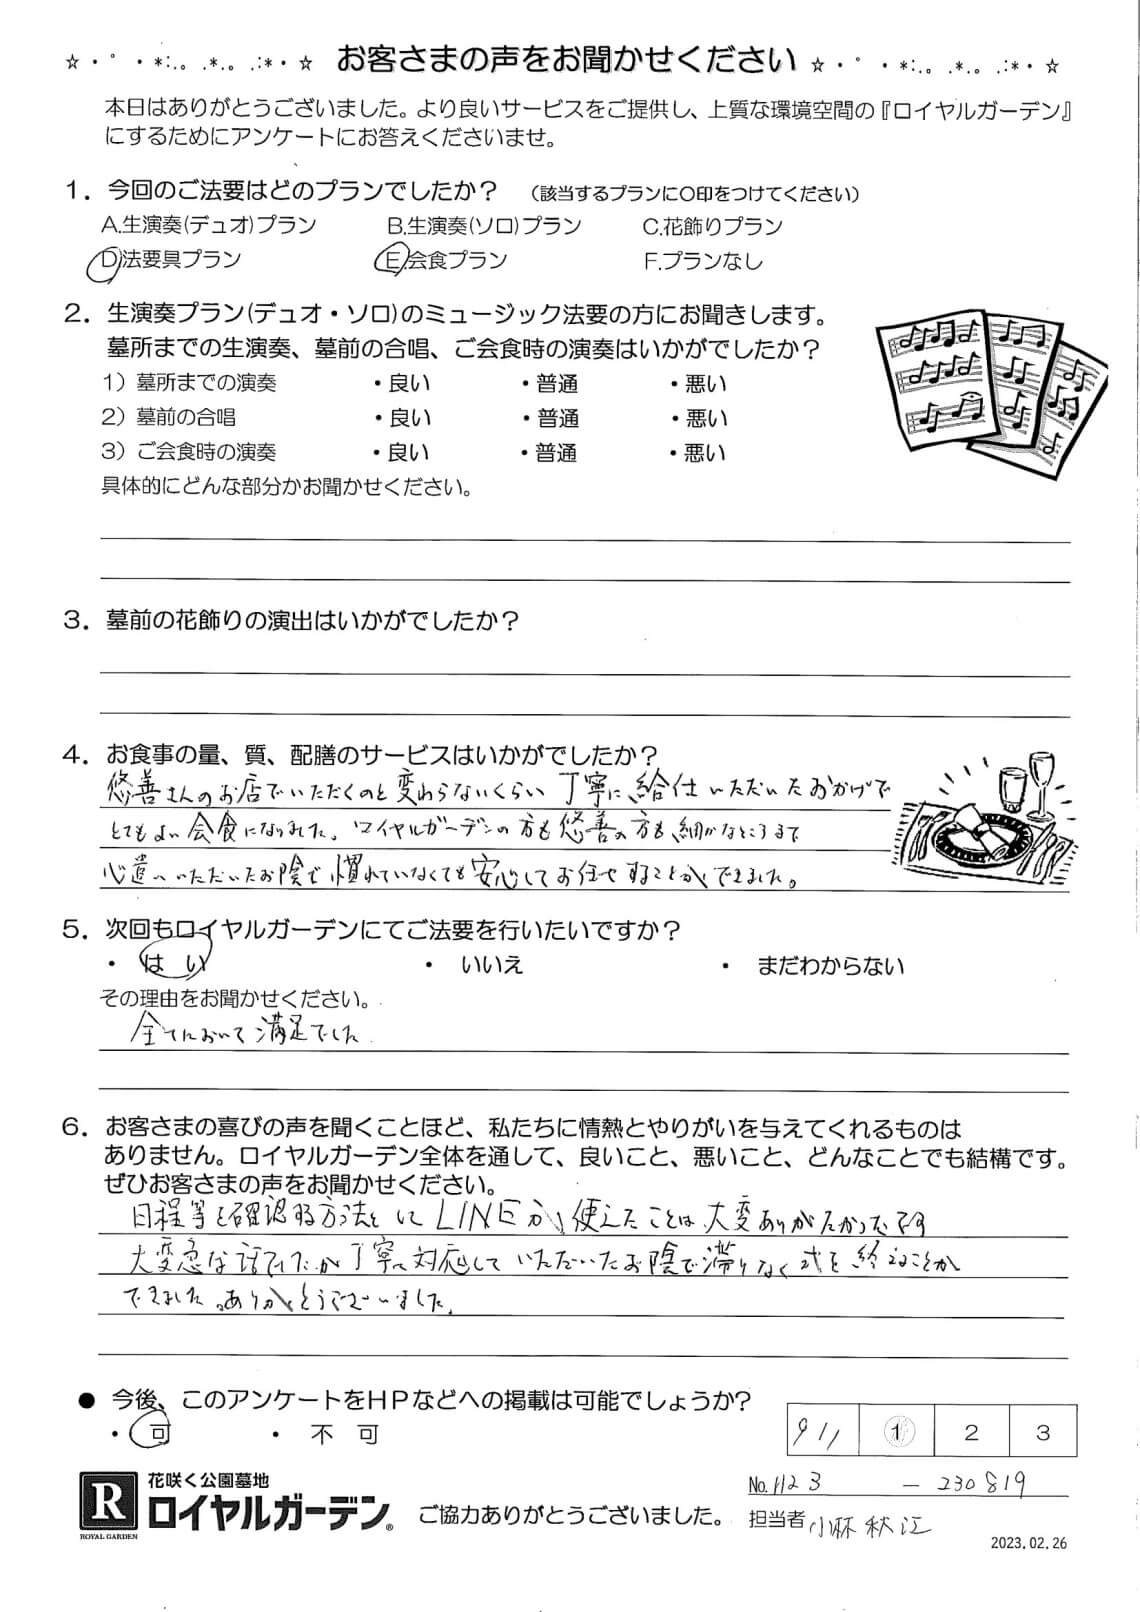 ☆・゜・*:.。.*.。.:*・☆ お客さまの声をお聞かせください ☆・゜・*:.。.*.。.:*・☆
本日はありがとうございました。より良いサービスをご提供し、上質な環境空間の『ロイヤルガーデン』
にするためにアンケートにお答えくださいませ。
1．今回のご法要はどのプランでしたか？ （該当するプランに〇印をつけてください）
A.生演奏(デュオ)プラン B.生演奏(ソロ)プラン C.花飾りプラン
D.法要具プラン E.会食プラン F.プランなし
2．生演奏プラン(デュオ・ソロ)のミュージック法要の方にお聞きします。
墓所までの生演奏、墓前の合唱、ご会食時の演奏はいかがでしたか？
1）墓所までの演奏 ・良い ・普通 ・悪い
2）墓前の合唱 ・良い ・普通 ・悪い
3）ご会食時の演奏 ・良い ・普通 ・悪い
具体的にどんな部分かお聞かせください。
3．墓前の花飾りの演出はいかがでしたか？
4．お食事の量、質、配膳のサービスはいかがでしたか？
悠善さんのお店でいただくのと変わらないくらい丁寧に給仕いただいたおかげで
とてもよい会食になりました。ロイヤルガーデンの方も悠善の方も細かなところまで
心遣いいただいたお陰で慣れていなくても安心してお任せすることができました。
5．次回もロイヤルガーデンにてご法要を行いたいですか？
・ はい ・ いいえ ・ まだわからない
その理由をお聞かせください。
全てにおいて満足でした
6．お客さまの喜びの声を聞くことほど、私たちに情熱とやりがいを与えてくれるものは
ありません。ロイヤルガーデン全体を通して、良いこと、悪いこと、どんなことでも結構です。
ぜひお客さまの声をお聞かせください。
日程等を確認する方法としてLINEが使えたことは大変ありがたかったです
大変急な話でしたが丁寧に対応していただいたお陰で滞りなく式を終えることが
できました。ありがとうございました。
● 今後、このアンケートをHPなどへの掲載は可能でしょうか?
・ 可 ・ 不 可
911 1 2 3
No. 1123 － 230819
R ROYAL GARDEN
花咲く公園墓地
ロイヤルガーデン® ご協力ありがとうございました。
担当者 小林秋江
2023.02.26